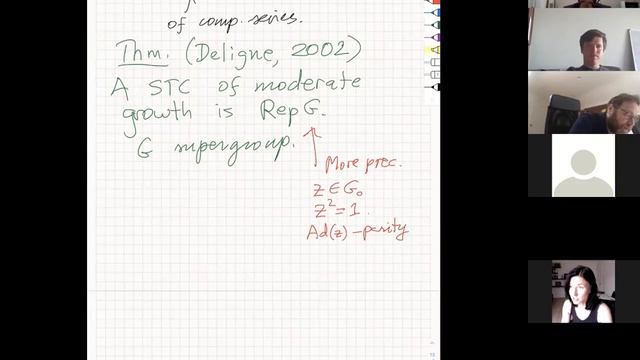 of comp. series.
Thm. (Deligne, 2002)
A STC of moderate
growth is Rep G.
G supergroup.
More prec.
z ∈ G₀
z² = 1.
Ad(z) - parity